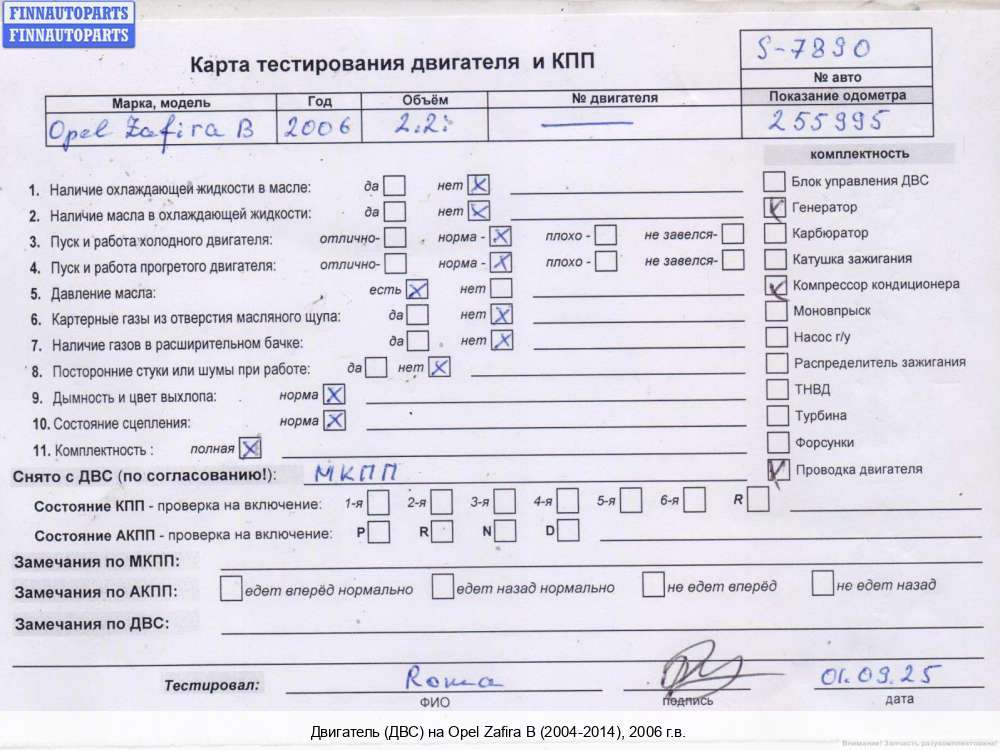 FINNAUTOPARTS
FINNAUTOPARTS
Карта тестирования двигателя и КПП
S-7890
№ авто
Марка, модель Год Объём № двигателя Показание одометра
Opel Zafira B 2006 2.2i — 255995
комплектность
1. Наличие охлаждающей жидкости в масле: да нет
Блок управления ДВС
2. Наличие масла в охлаждающей жидкости: да нет
Генератор
3. Пуск и работа холодного двигателя: отлично- норма - плохо - не завелся-
Карбюратор
4. Пуск и работа прогретого двигателя: отлично- норма - плохо - не завелся-
Катушка зажигания
5. Давление масла: есть нет
Компрессор кондиционера
6. Картерные газы из отверстия масляного щупа: да нет
Моновпрыск
7. Наличие газов в расширительном бачке: да нет
Насос г/у
8. Посторонние стуки или шумы при работе: да нет
Распределитель зажигания
9. Дымность и цвет выхлопа: норма
ТНВД
10. Состояние сцепления: норма
Турбина
11. Комплектность : полная
Форсунки
Снято с ДВС (по согласованию!): МКПП
Проводка двигателя
Состояние КПП - проверка на включение: 1-я 2-я 3-я 4-я 5-я 6-я R
Состояние АКПП - проверка на включение: P R N D
Замечания по МКПП:
Замечания по АКПП: едет вперёд нормально едет назад нормально не едет вперёд не едет назад
Замечания по ДВС:
Тестировал: Roma 01.09.25
ФИО подпись дата
Двигатель (ДВС) на Opel Zafira B (2004-2014), 2006 г.в.
Внимание! Запчасть разукомплектована!